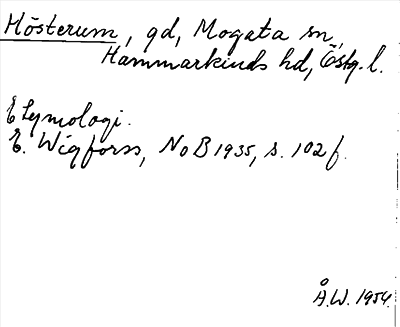 Hösterum, gd, Mogata sn,
Hammarkinds hd, Östg. l.
Etymologi.
E. Wigforss, NoB 1935, s. 102 f.
Å.W. 1954.